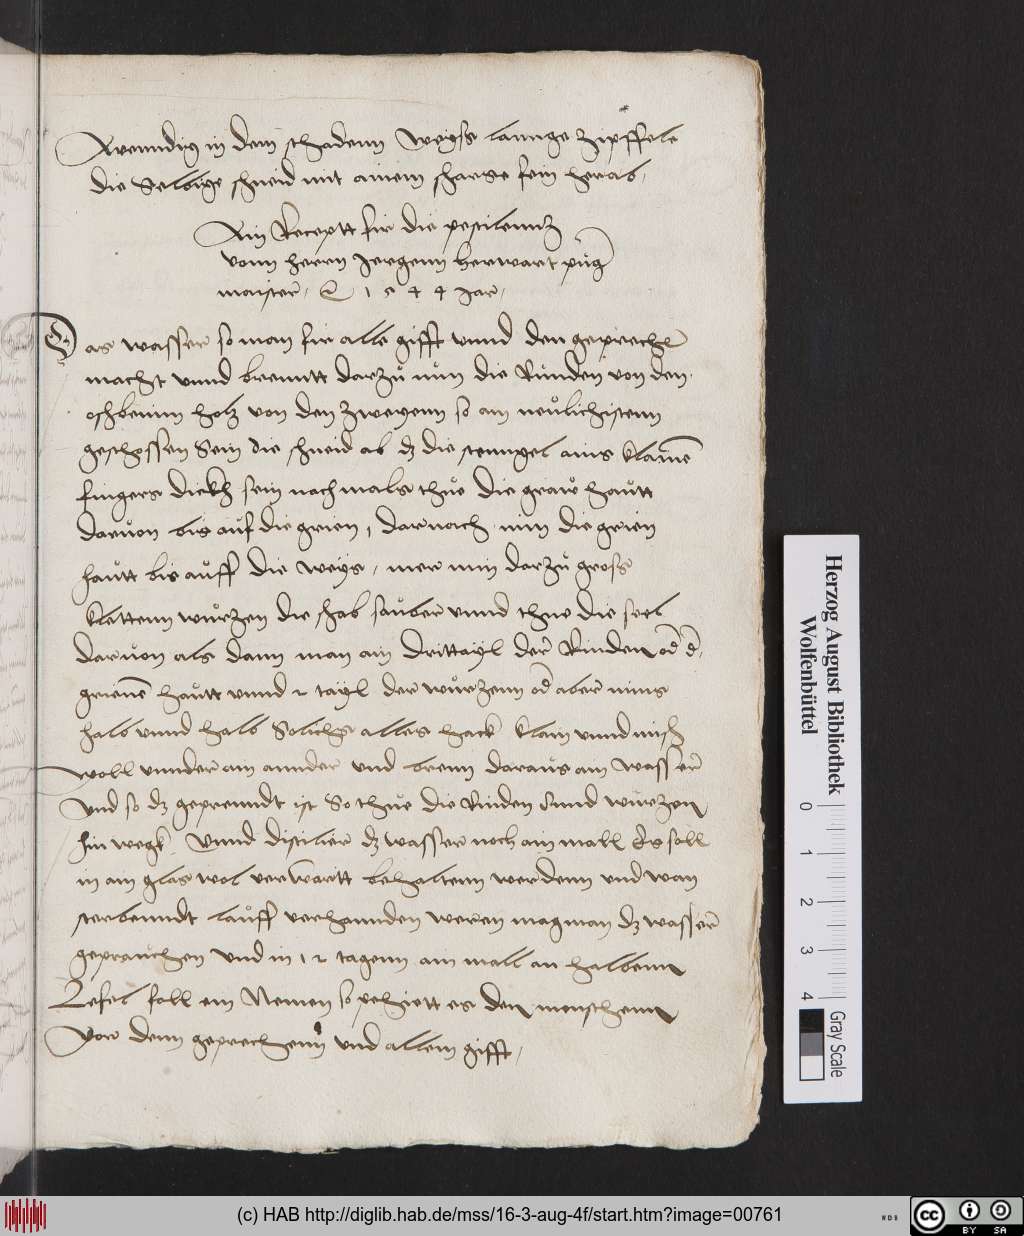 Awenndig in dem schadenn weyss lannge Zipffele
die Selbige schneid mit ainem scharse fein herab,
Ain Receptt fir die pestilenntz
vonn herrn Jergenn herwart purg
maister, 1544 Jar,
Das wasser so man fir alle gifft unnd den geprechē
macht unnd brenntt darzů nim die Rinden von den
eschbenim holtz von den Zweyenn so am neulichistenn
geschossen Sein die schneid ab dz die stenngel ains klainē
fingers dickh sein nachmals thue die graw hautt
daruon bis auf die grien, darnach nim die grien
hautt bis auff die weys, mer nim darzů gross
klettenn wurzen die schab sauber unnd thue die seel
daruon als dann man ain drittayl der Rinden od d,
grienē hautt unnd 2 tayl der wurzenn od aber nims
halb unnd halb Solichs alles hack klain unnd misch
woll unnder ain annder und brenn daraus ain wasser
und so dz geprenndt ist So thue die Rinden unnd wurzen
hin wegk, Unnd distilier dz wasser noch ain mall Es soll
in ain glas wol verwartt behaltenn werdenn und wan
sterbenndt lauff verhannden weren mag man dz wasser
geprauchen und in 12 tagenn ain mall an halbenn
Lefel foll ein Nemen so pehiett es den menschenn
Vor denn geprechenn und allem gifft,
Herzog August Bibliothek
Wolfenbüttel
0 1 2 3 4
Gray Scale
(c) HAB http://diglib.hab.de/mss/16-3-aug-4f/start.htm?image=00761
WDB
cc BY SA